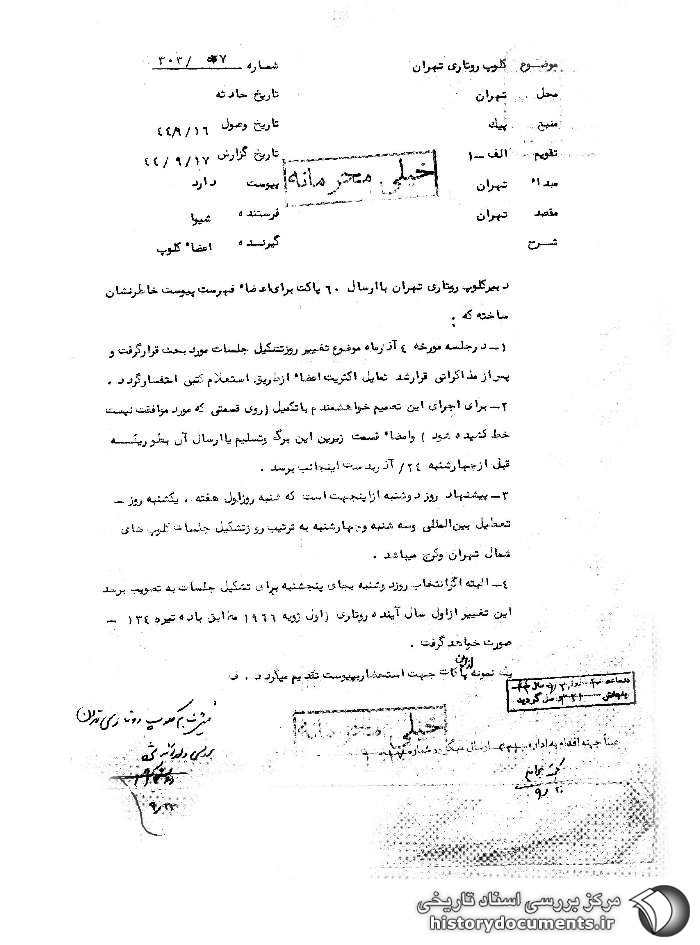 موضوع کلوپ روتاری تهران
شماره ۳۰۳/
محل تهران
تاریخ حادثه
منبع پیک
تاریخ وصول ۴۴/۹/۱۶
تقویم الف-۱
تاریخ گزارش ۴۴/۹/۱۷
خیلی محرمانه
مبداء تهران
پیوست دارد
مقصد تهران
فرستنده شیوا
شرح
گیرنده اعضاء کلوپ
دبیر کلوپ روتاری تهران با ارسال ۶۰ پاکت برای اعضاء فهرست پیوست خاطرنشان
ساخته که :
۱- در جلسه مورخه ۴ آذرماه موضوع تغییر روز تشکیل جلسات مورد بحث قرار گرفت و
پس از مذاکراتی قرار شد تمایل اکثریت اعضاء از طریق استعلام کتبی استفسار گردد .
۲- برای اجرای این تصمیم خواهشمندم با تکمیل (روی قسمتی که مورد موافقت نیست
خط کشیده شود ) وامضاء قسمت زیرین این برگ وتسلیم یا ارسال آن بطوریکه
قبل از چهارشنبه ۲۴/ آذر بدست اینجانب برسد .
۳- پیشنهاد روز دوشنبه از اینجهت است که شنبه روز اول هفته ، یکشنبه روز -
تعطیل بین‌المللی وسه شنبه وچهارشنبه به ترتیب روز تشکیل جلسات کلوپ های
شمال تهران وکرج میباشد .
۴- البته اگر انتخاب روز دوشنبه بجای پنجشنبه برای تشکیل جلسات به تصویب برسد
این تغییر از اول سال آینده روتاری (اول ژویه ۱۹۶۶ مطابق با ده تیره ۱۳۴ -
صورت خواهد گرفت .
یک نمونه از این پاکات جهت استحضار بپیوست تقدیم میگردد . ف
خیلی محرمانه
عیناً جهت اقدام به اداره ارسال میگردد شماره
۹/۲۰
۹/۲۲
مرکز بررسی اسناد تاریخی
historydocuments.ir